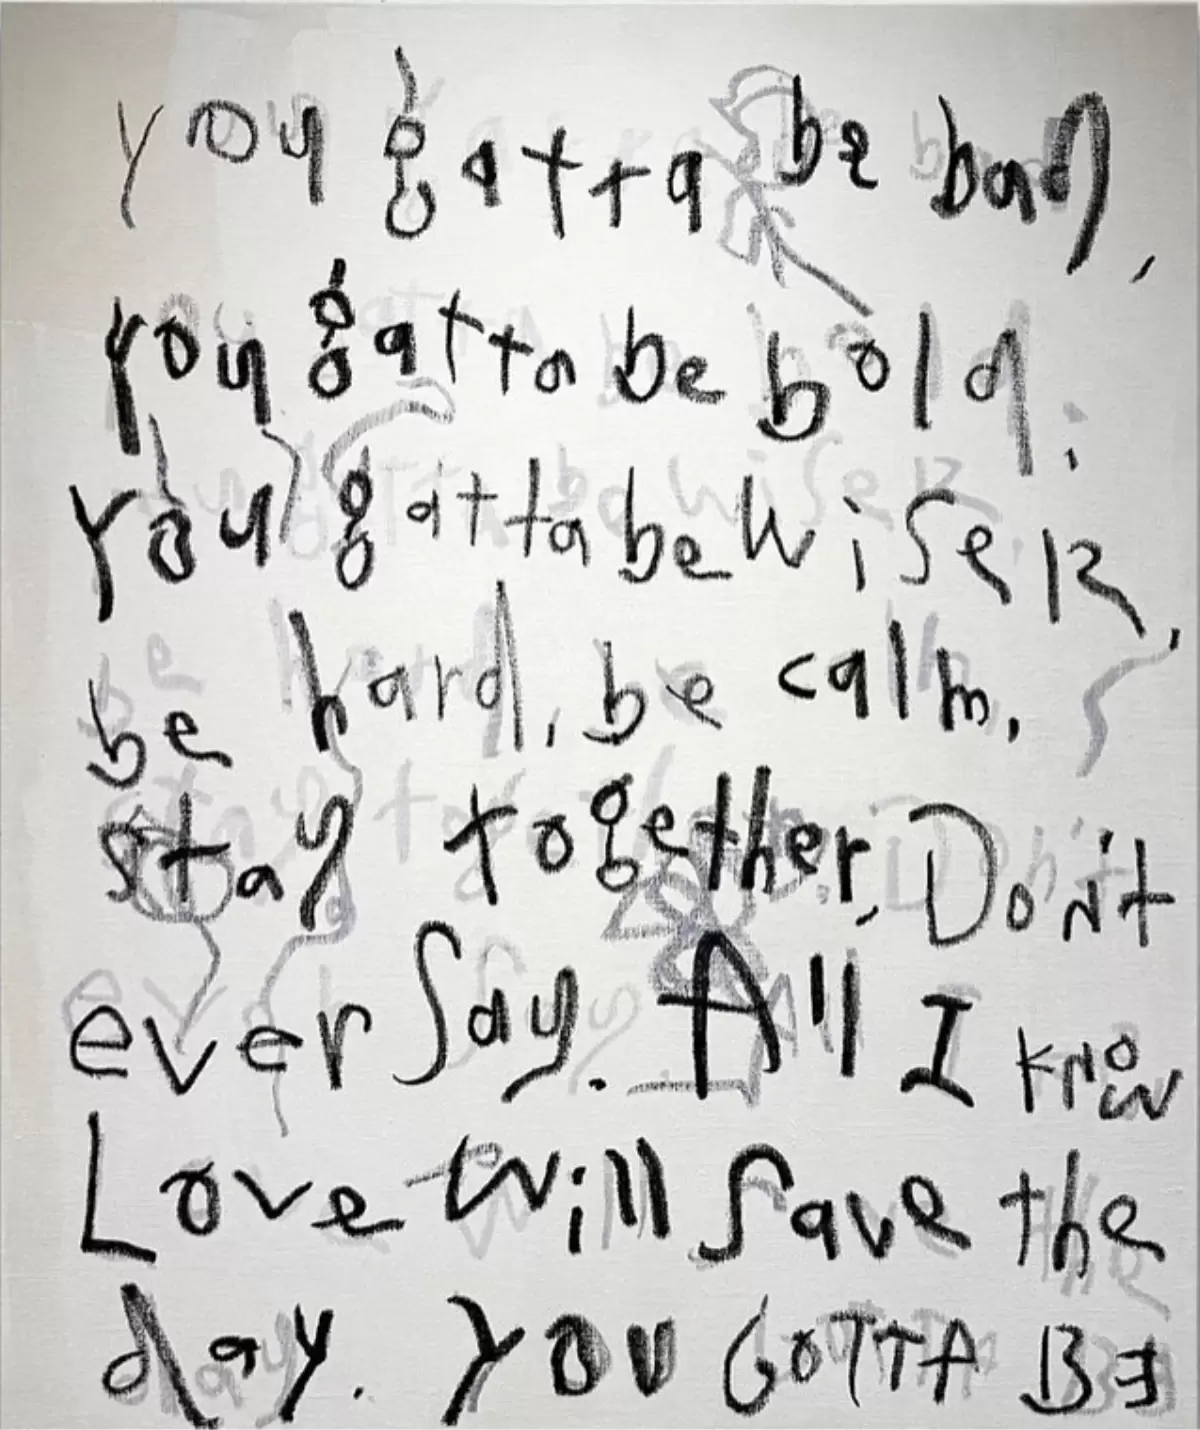 you gatta be bad,
you gatta be bold.
you gatta be wiser,
be hard, be calm.
stay together, Don't
ever say. All I know
Love will save the
day. YOU GOTTA BE